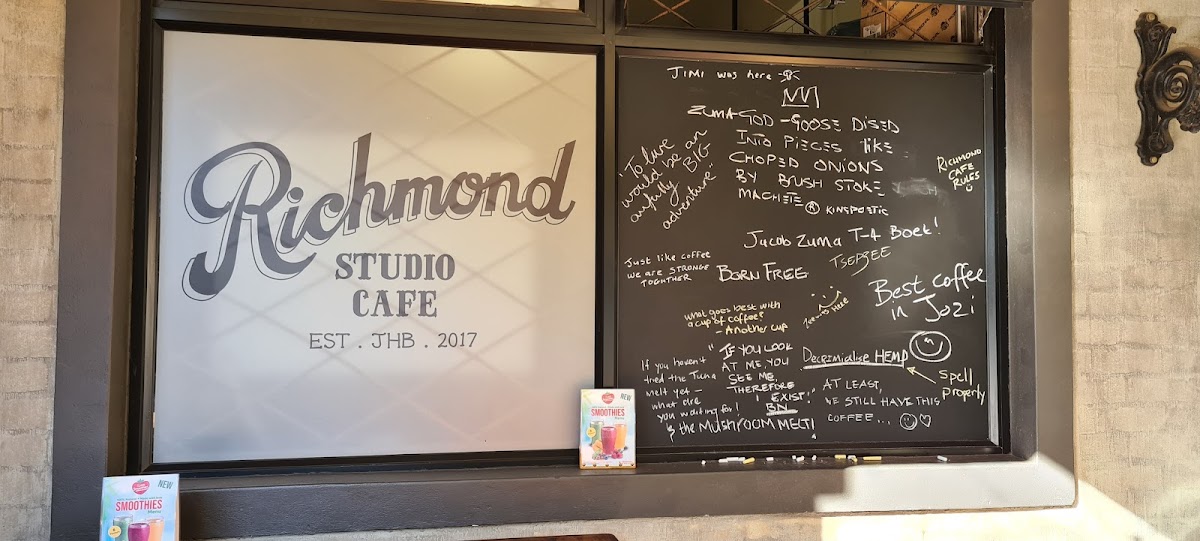 Richmond
STUDIO
CAFE
EST . JHB . 2017
JIMI was here
ZUMA-GOD -GOOSE DISED
INTO PIECES LIKE
CHOPED ONIONS
BY BRUSH STOKE
MACHETE
KINGPOETIC
'To live
would be an
awfully BIG
adventure'
RICHMOND
CAFE
RULES
Jacob Zuma T-4 Boek!
TSEPEE
Just like coffee
we are STRONGE
TOGHTHER
BORN FREE
Best coffee
in Jozi
what goes best with
a cup of coffee?
- Another cup
was Here
If you haven't
tried the Tuna
melt yet -
what are
you waiting for!
& the MUSHROOM MELT!
"IF YOU LOOK
AT ME, YOU
SEE ME
THEREFORE
I EXIST!"
BN
Decrimialise HEMP
spell
properly
AT LEAST,
WE STILL HAVE THIS
COFFEE...
NEW
SMOOTHIES
Menu
NEW
SMOOTHIES
Menu